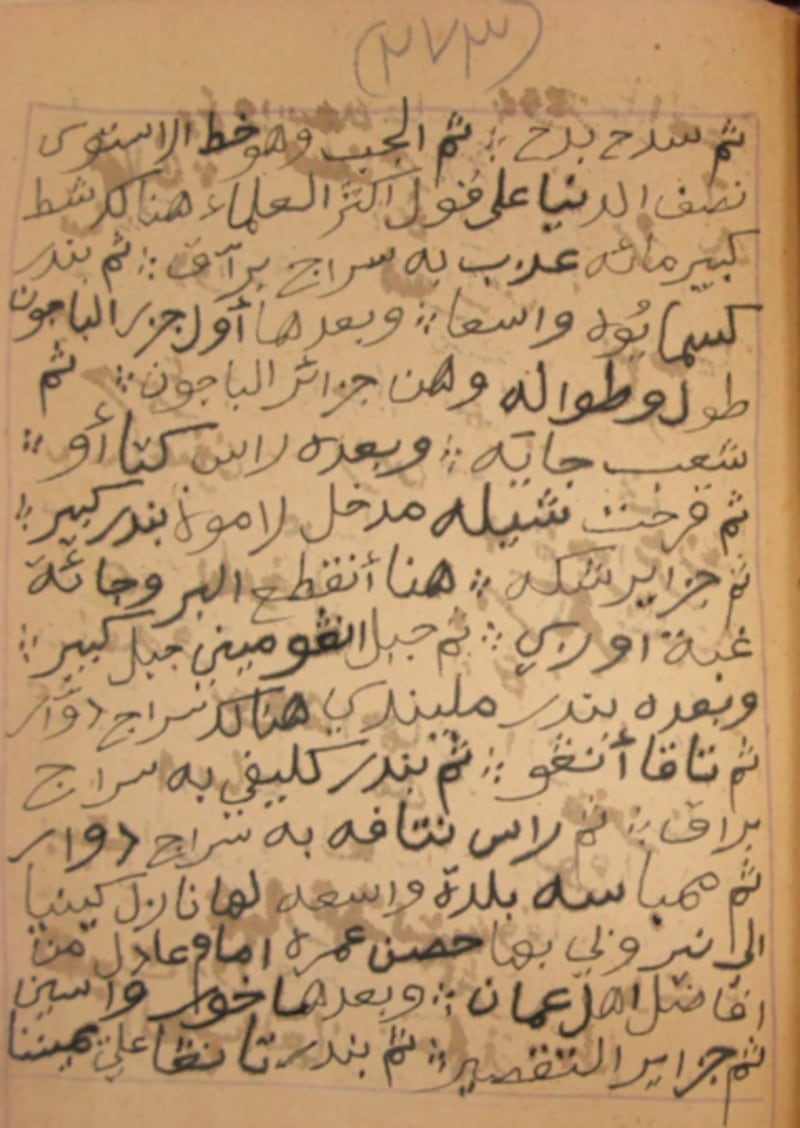 (٢٧٣)
ثم سدح بدح ؛ ثم الجب وهو خط الاستوى
نصف الدنيا على قول اكثر العلماء هناك شط
كبير مائه عذب به سراج برآق ؛ ثم بندر
كسمايُوه واسعا ؛ وبعدها أول جزر الباجون
طولا وطواله وهن جزائر الباجون ؛ ثم
شعب جايه ؛ وبعده راس كتاأو ؛
ثم فرخت شيله مدخل لاموه بندر كبير ؛
ثم جزاير شكه ؛ هنا أنقطع البر وجائة
غبة اوربي ؛ ثم جبل انغوميني جبل كبير ؛
وبعده بندر مليندي هناك سراج دوّار
ثم تاقاأنغو ؛ ثم بندر كليفي به سراج
براق ؛ ثم راس نتافه به سراج دوار
ثم ممباسه بلدة واسعه لها نازل كينيا
الى نيروبي بها حصن عمره امام عادل من
افاضل اهل عمان ؛ وبعدها خور واسين
ثم جزاير التقصير ؛ ثم بندر تانقا على يميننا